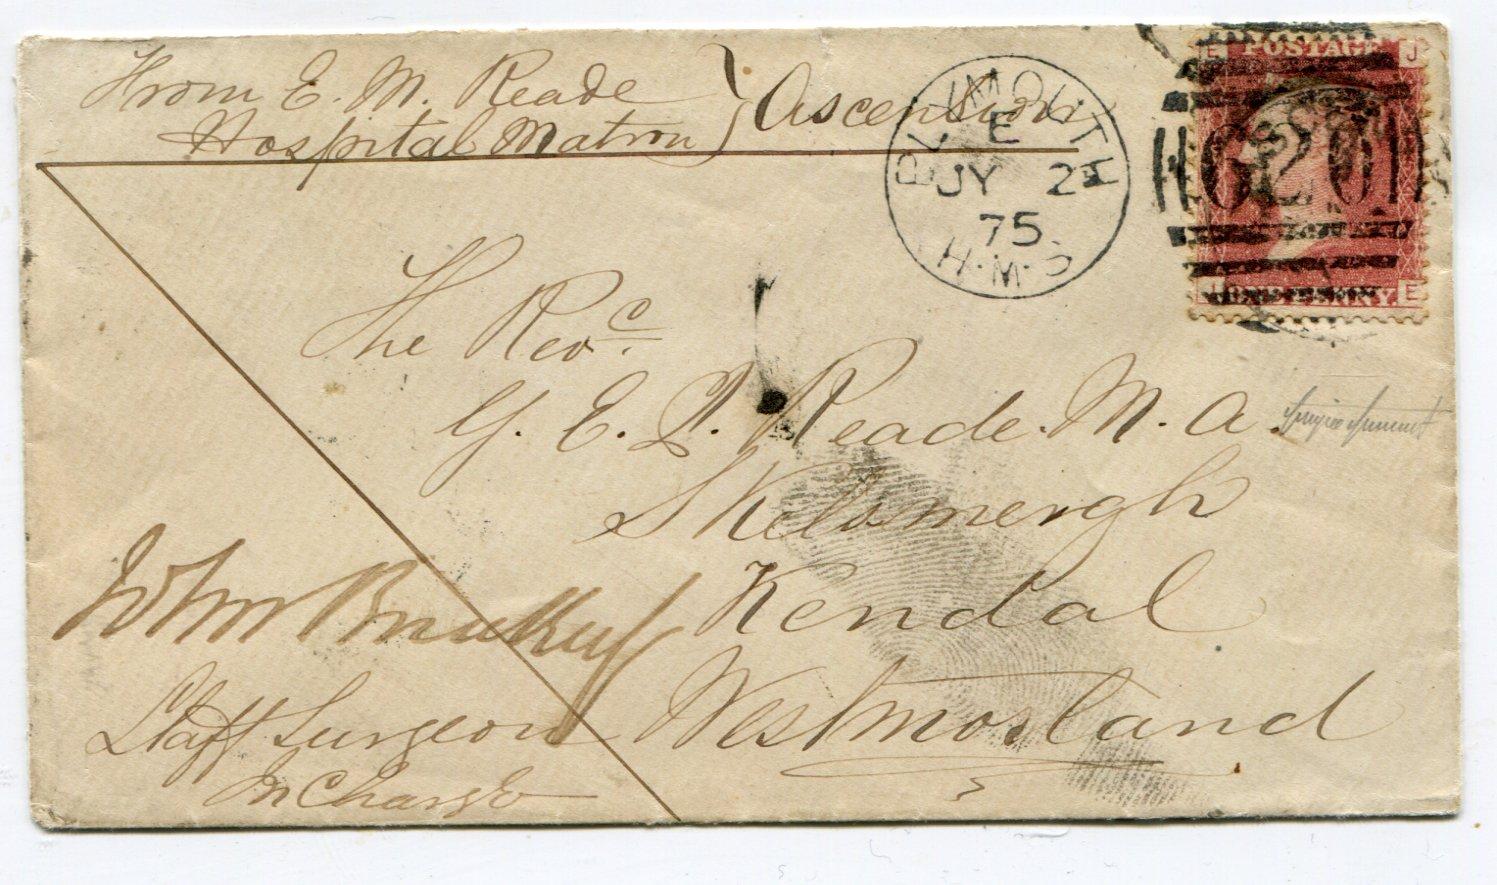 From E. M. Reade
Hospital Matron } Ascension
PLYMOUTH
E
JY 2
75
H.M.S
E POSTAGE J
G20
J ONE PENNY E
The Revd.
G. E. P. Reade. M. A.
Skelsmergh
Kendal
Westmorland
John
Staff Surgeon
In Charge